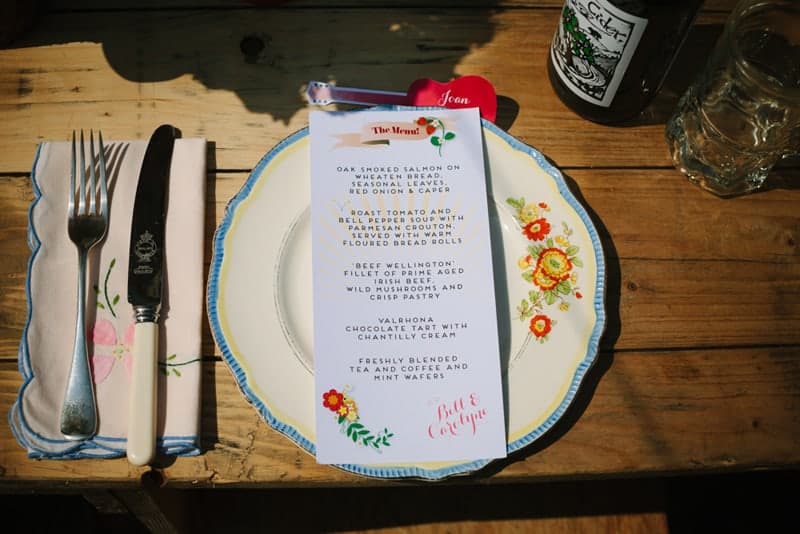 Joan
The Menu!
OAK SMOKED SALMON ON
WHEATEN BREAD,
SEASONAL LEAVES,
RED ONION & CAPER
ROAST TOMATO AND
BELL PEPPER SOUP WITH
PARMESAN CROUTON,
SERVED WITH WARM
FLOURED BREAD ROLLS
'BEEF WELLINGTON'
FILLET OF PRIME AGED
IRISH BEEF,
WILD MUSHROOMS AND
CRISP PASTRY
VALRHONA
CHOCOLATE TART WITH
CHANTILLY CREAM
FRESHLY BLENDED
TEA AND COFFEE AND
MINT WAFERS
Bell &
Carolyne
Cider